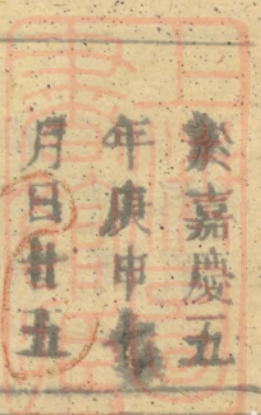 於嘉慶五
年庚申七
月日廿五